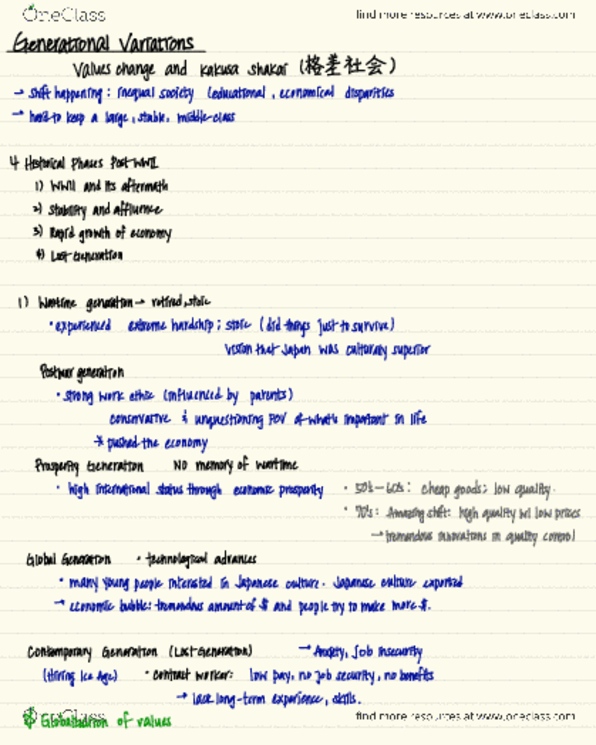 OneClass
find more resources at www.oneclass.com
Generational Variations
Values change and kakusa shakai (格差社会)
→ shift happening: inequal society (educational, economical disparities
→ hard to keep a large, stable, middle-class
4 Historical Phases Post WWII
1) WWII and its aftermath
2) Stability and affluence
3) Rapid growth of economy
4) Lost Generation
1) Wartime generation → retired, stoic
• experienced extreme hardship; stoic (did things just to survive)
vision that Japan was culturally superior
Postwar generation
• strong work ethic (influenced by parents)
conservative & unquestioning POV of what's important in life
* pushed the economy
Prosperity Generation No memory of wartime
• high international status through economic prosperity
• 50's-60's: cheap goods; low quality.
• 70's: Amazing shift: high quality w/ low prices
→ tremendous innovations in quality control
Global Generation • technological advances
• many young people interested in Japanese culture. Japanese culture exported
→ economic bubble: tremendous amount of $ and people try to make more $.
Contemporary Generation (Lost Generation) → Anxiety, job insecurity
(Hiring Ice Age) • contract worker: low pay, no job security, no benefits
→ lack long-term experience, skills.
OneClass
find more resources at www.oneclass.com
of values